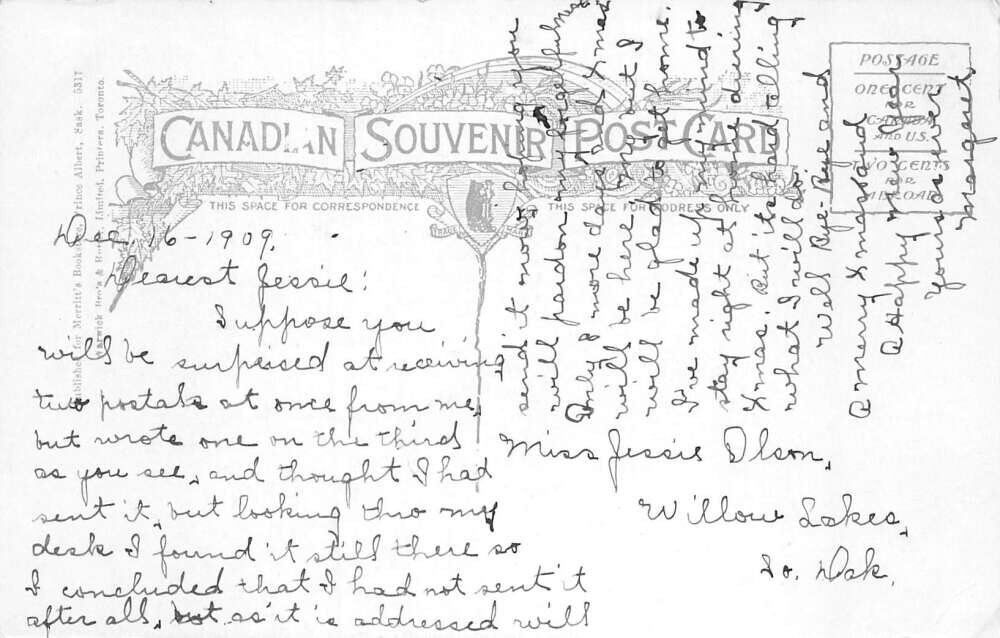 CANADIAN SOUVENIR POST CARD
THIS SPACE FOR CORRESPONDENCE
THIS SPACE FOR ADDRESS ONLY
POSTAGE
ONE CENT
FOR
CANADA
AND U.S.
TWO CENTS
FOR
ABROAD
Published for Merritt's Bookstore, Prince Albert, Sask. 5317
Warwick Bro's & Rutter, Limited, Printers, Toronto.
Dec. 16-1909.
Dearest Jessie:
Suppose you
will be surprised at receiving
two postals at once from me,
but wrote one on the third
as you see, and thought I had
sent it, but looking thro my
desk I found it still there so
I concluded that I had not sent it
after all, but as it is addressed will
send it now hoping you
will pardon my forgetfulness
Only 8 more days and Xmas
will be here my but I
will be glad to at home.
I've made up my mind to
stay right at home during
Xmas. But its hard telling
what I will do.
Well Bye-Bye and
A merry Xmas and
A Happy New Year
Yours as ever
Margaret.
Miss Jessie Olson,
Willow Lakes,
So. Dak.